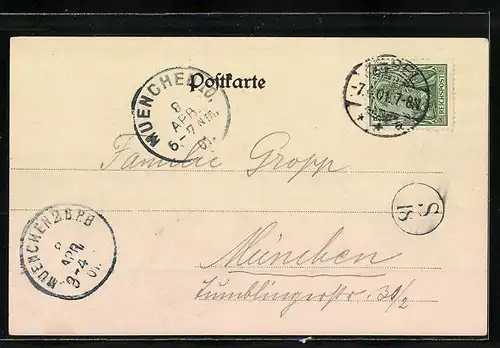 Postkarte
MUENCHEN 10.
8
APR.
6-7 Nm.
01.
-7.4.01.7-8N.
REICHSPOST
Familie Gropp
S
18
MUENCHEN 2 B.P.B
8
APR.
3-4
01.
München
Tumblingerstr. 30/2